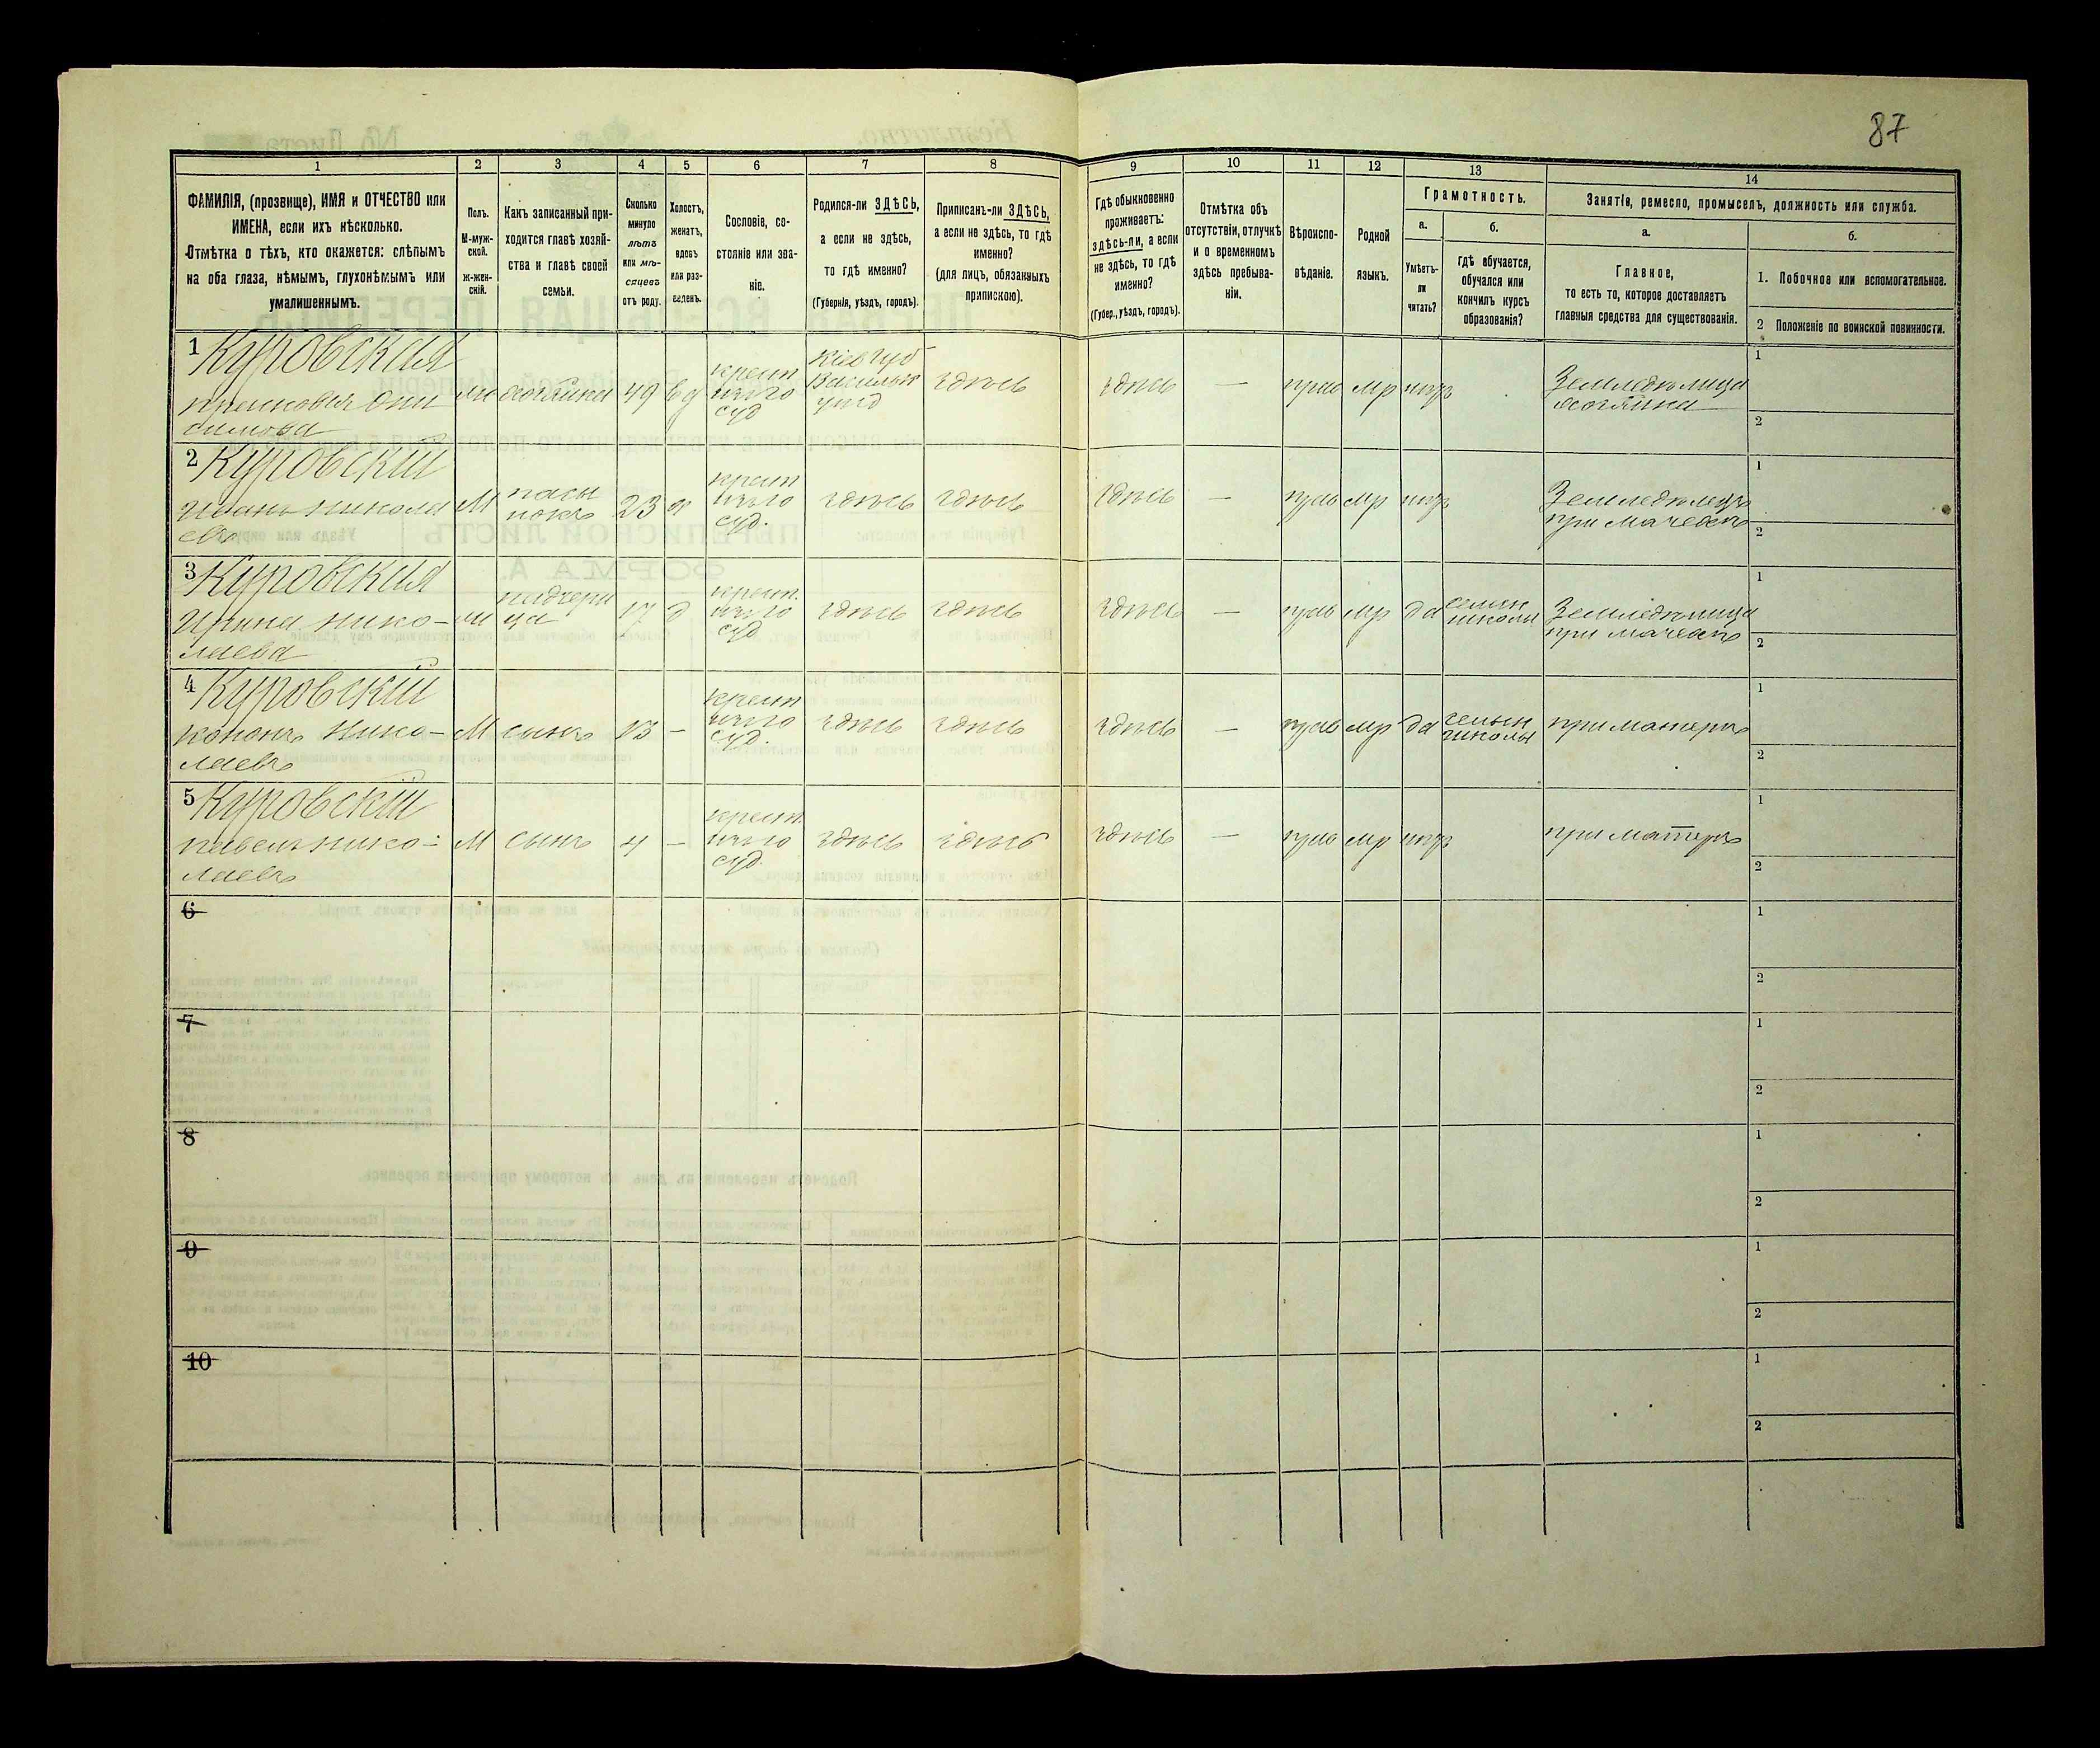 87
1
2
3
4
5
6
7
8
9
10
11
12
13
14
ФАМИЛІЯ, (прозвище), ИМЯ и ОТЧЕСТВО или
ИМЕНА, если ихъ нѣсколько.
Отмѣтка о тѣхъ, кто окажется: слѣпымъ
на оба глаза, нѣмымъ, глухонѣмымъ или
умалишеннымъ.
Полъ.
М-муж-
ской.
ж-жен-
скій.
Какъ записанный при-
ходится главѣ хозяй-
ства и главѣ своей
семьи.
Сколько
минуло
лѣтъ
или мѣ-
сяцевъ
отъ роду.
Холостъ,
женатъ,
вдовъ
или раз-
веденъ.
Сословіе, со-
стояніе или зва-
ніе.
Родился-ли ЗДѢСЬ,
а если не здѣсь,
то гдѣ именно?
(Губернія, уѣздъ, городъ).
Приписанъ-ли ЗДѢСЬ,
а если не здѣсь, то гдѣ
именно?
(для лицъ, обязанныхъ
припискою).
Гдѣ обыкновенно
проживаетъ:
здѣсь-ли, а если
не здѣсь, то гдѣ
именно?
(Губер., уѣздъ, городъ).
Отмѣтка объ
отсутствіи, отлучкѣ
и о временномъ
здѣсь пребыва-
ніи.
Вѣроиспо-
вѣданіе.
Родной
языкъ.
Грамотность.
а.
Умѣетъ-
ли
читать?
б.
гдѣ обучается,
обучался или
кончилъ курсъ
образованія?
Занятіе, ремесло, промыселъ, должность или служба.
а.
Главное,
то есть то, которое доставляетъ
главныя средства для существованія.
б.
1. Побочное или вспомогательное.
2 Положеніе по воинской повинности.
1 Куровская
Прасковья Они
симова
хозяйка
49
вд
крест
суд
Кіев губ
Васильк
уѣзд
здѣсь
здѣсь
—
прав
мр
нѣтъ
Земледѣлица
хозяйка
1
2
2 Куровскій
Иванъ Никола
евъ
М
пасы
нокъ
23
х
крест
суд.
здѣсь
здѣсь
здѣсь
—
прав
мр
нѣтъ
Земледѣлецъ
при мачехѣ
1
2
3 Куровская
Ирина Нико-
лаева
падчери
ца
17
д
крест.
суд
здѣсь
здѣсь
здѣсь
—
прав
мр
да
школы
Земледѣлица
при мачехѣ
1
2
4 Куровскій
Кононъ Нико-
лаевъ
М
сынъ
13
—
крест
суд.
здѣсь
здѣсь
здѣсь
—
прав
мр
да
школы
при матерѣ
1
2
5 Куровскій
Павелъ Нико-
лаевъ
М
сынъ
4
—
крест.
суд.
здѣсь
здѣсь
здѣсь
—
прав
мр
нѣтъ
при матерѣ
1
2
6
1
2
7
1
2
8
1
2
9
1
2
10
1
2